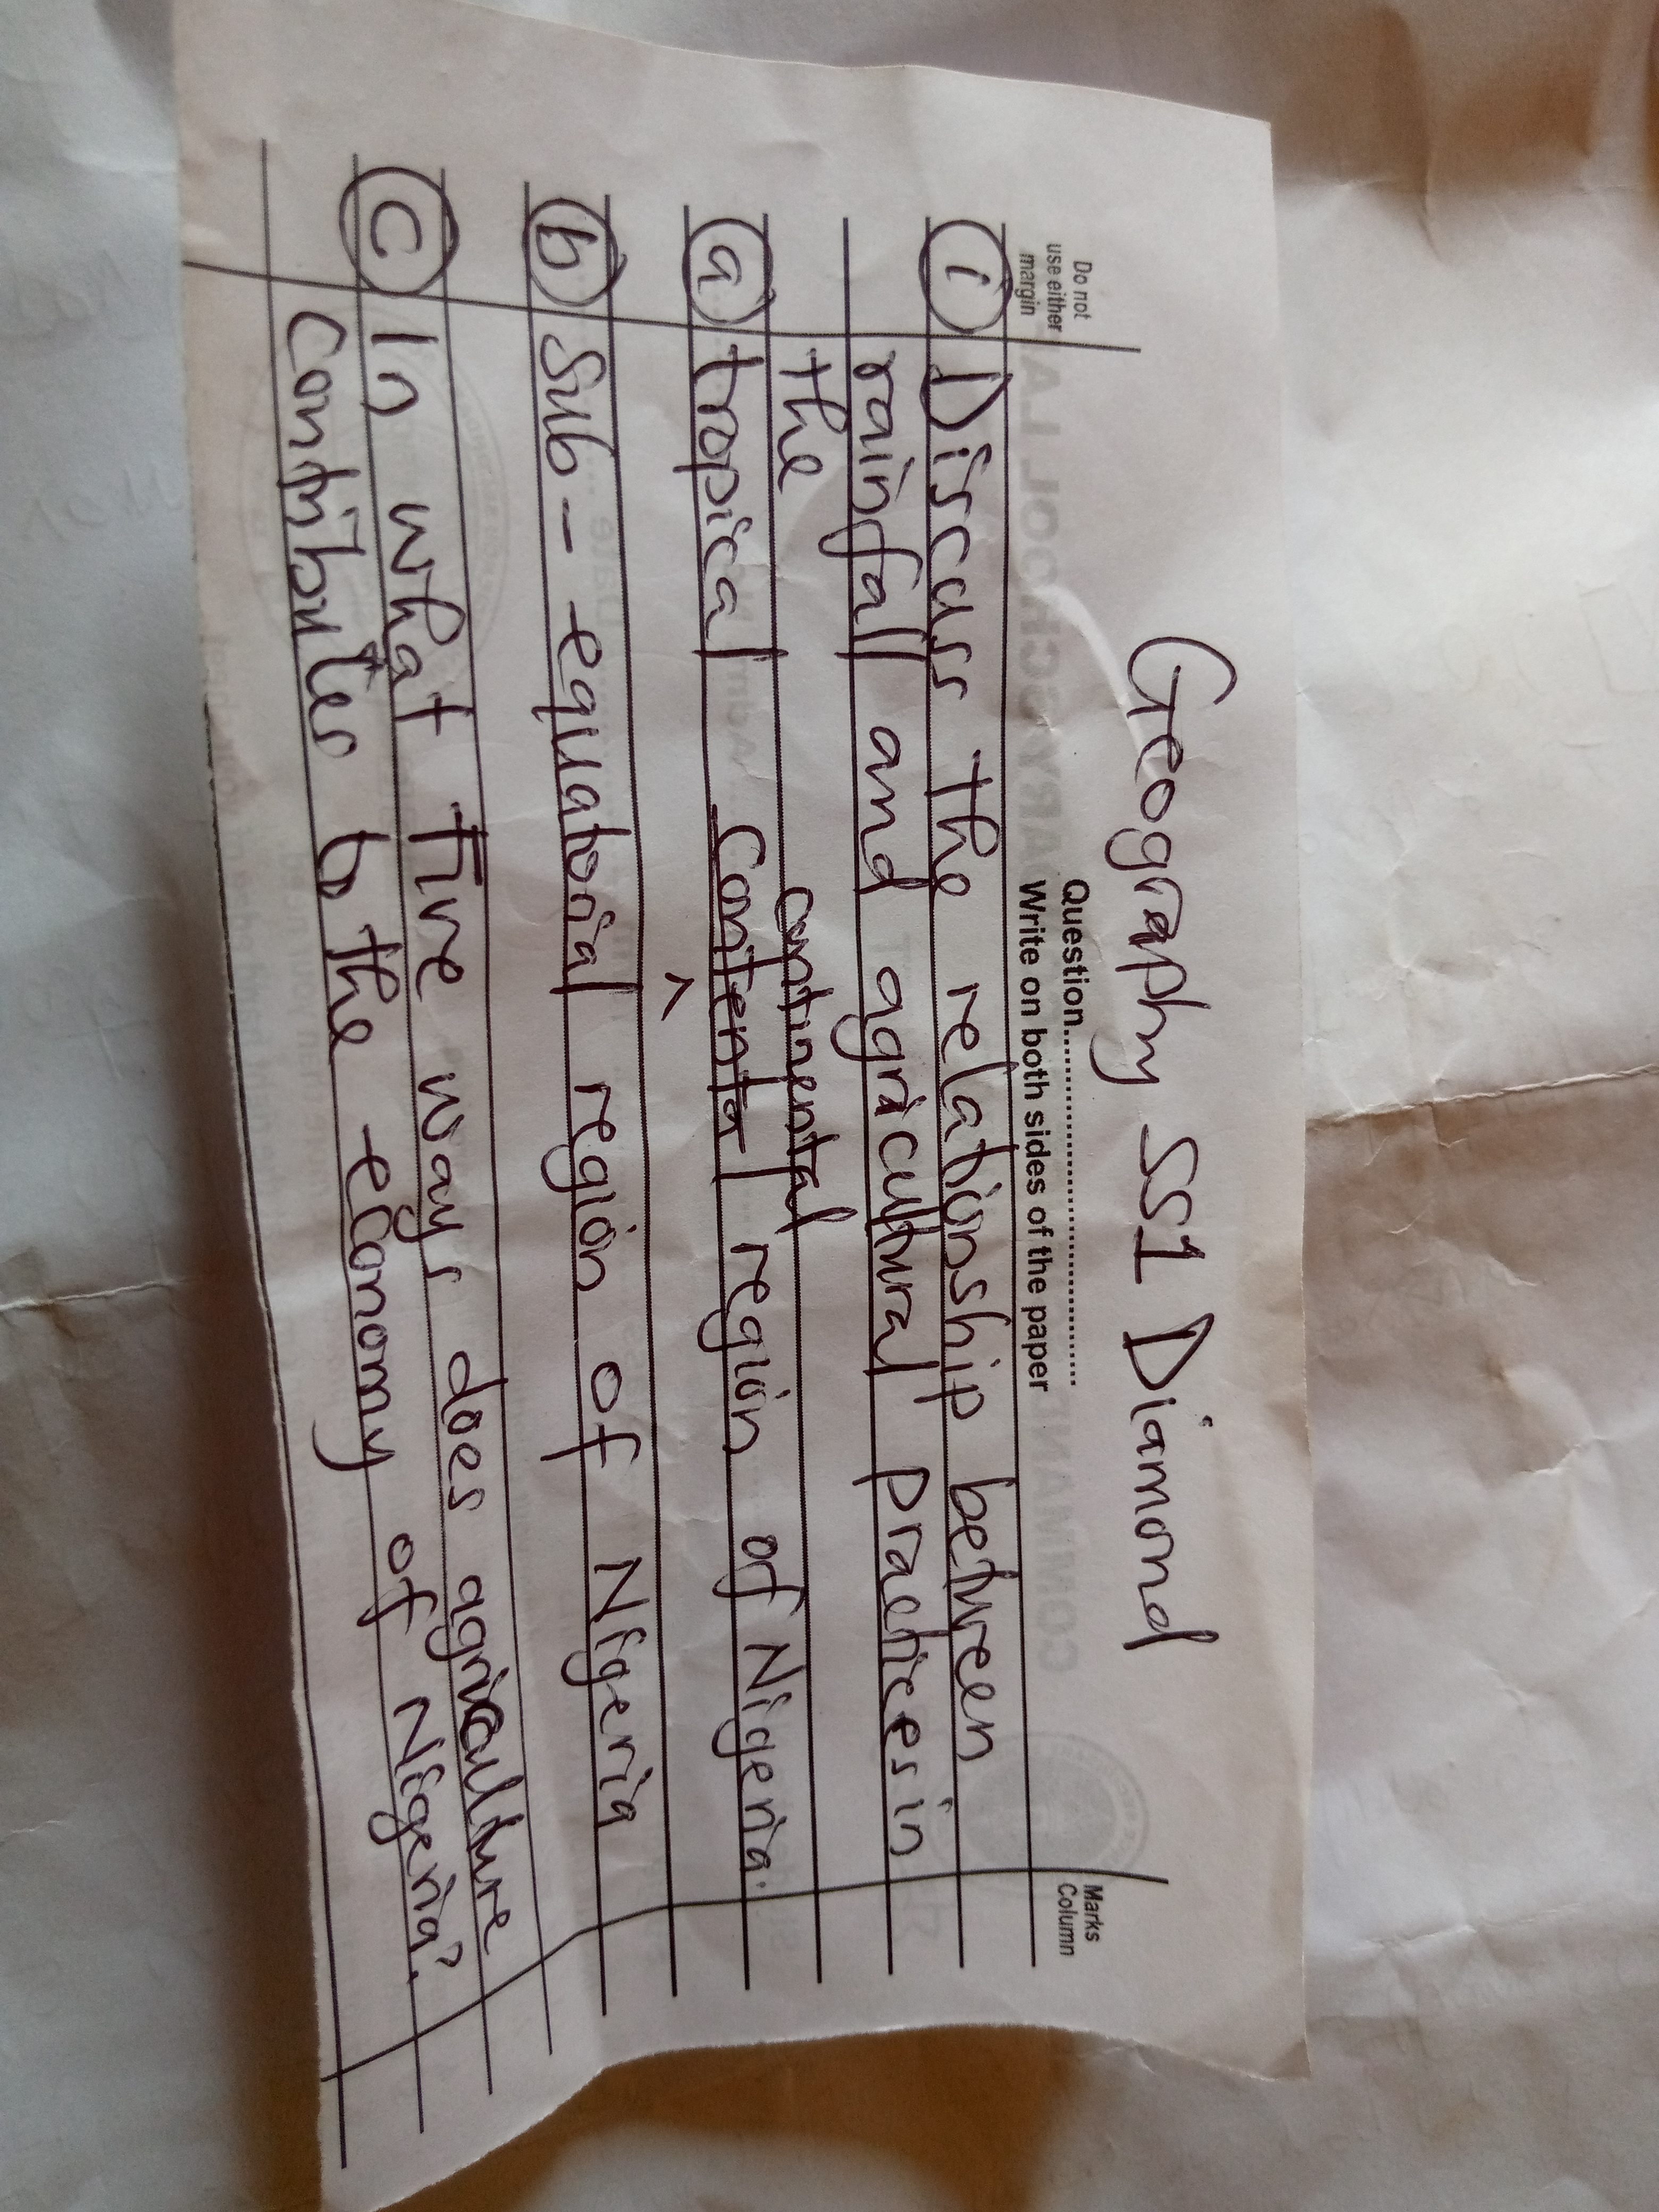 Geography SS1 Diamond
Question
Do not use either margin
Write on both sides of the paper
Marks Column
(i) Discuss the relationship between
rainfall and agricultural practices in
the
continental
(a) tropical Contental region of Nigeria.
(b) Sub-equatorial region of Nigeria
(c) In what five ways does agriculture
Contributes to the economy of Nigeria?.